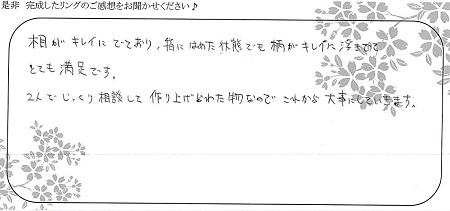 是非 完成したリングのご感想をお聞かせください♪
柄がキレイにでており、指にはめた状態でも柄がキレイに浮きでて
とても満足です。
2人でじっくり相談して作り上げられた物なのでこれから大事にしていきます。